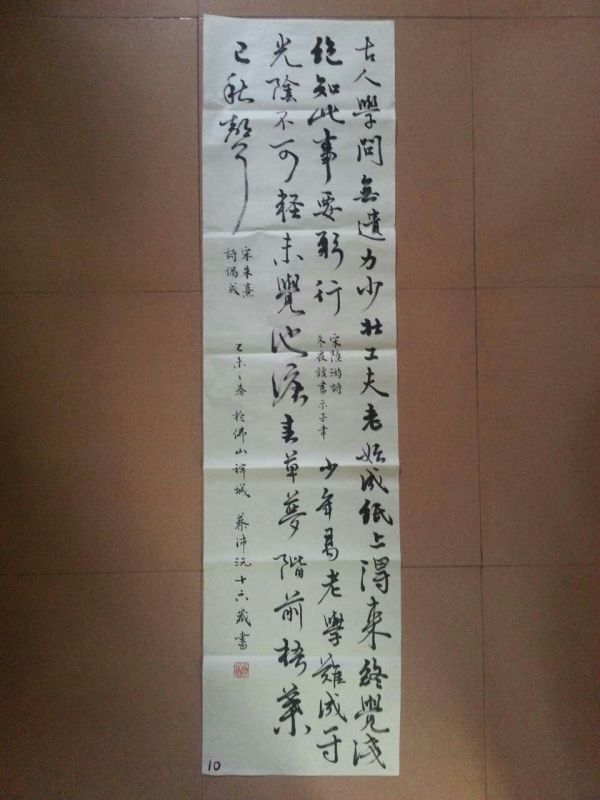 古人學問無遺力少壯工夫老始成紙上得来終覺淺
絶知此事要躬行
宋陸游詩
冬夜讀書示子聿
少年易老學難成一寸
光陰不可輕未覺池塘春草夢階前梧葉
已秋聲
宋朱熹
詩偶成
乙未之春 於佛山禪城 蔡沛沅十六歲書
10